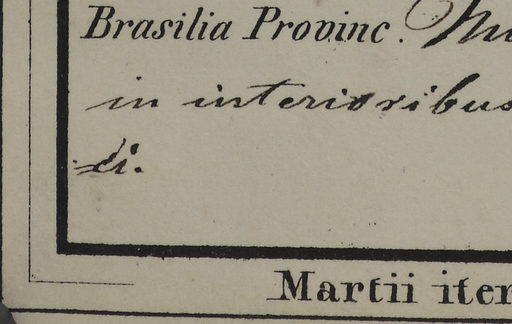 Brasilia Provinc.
in interioribus
di.
Martii iter